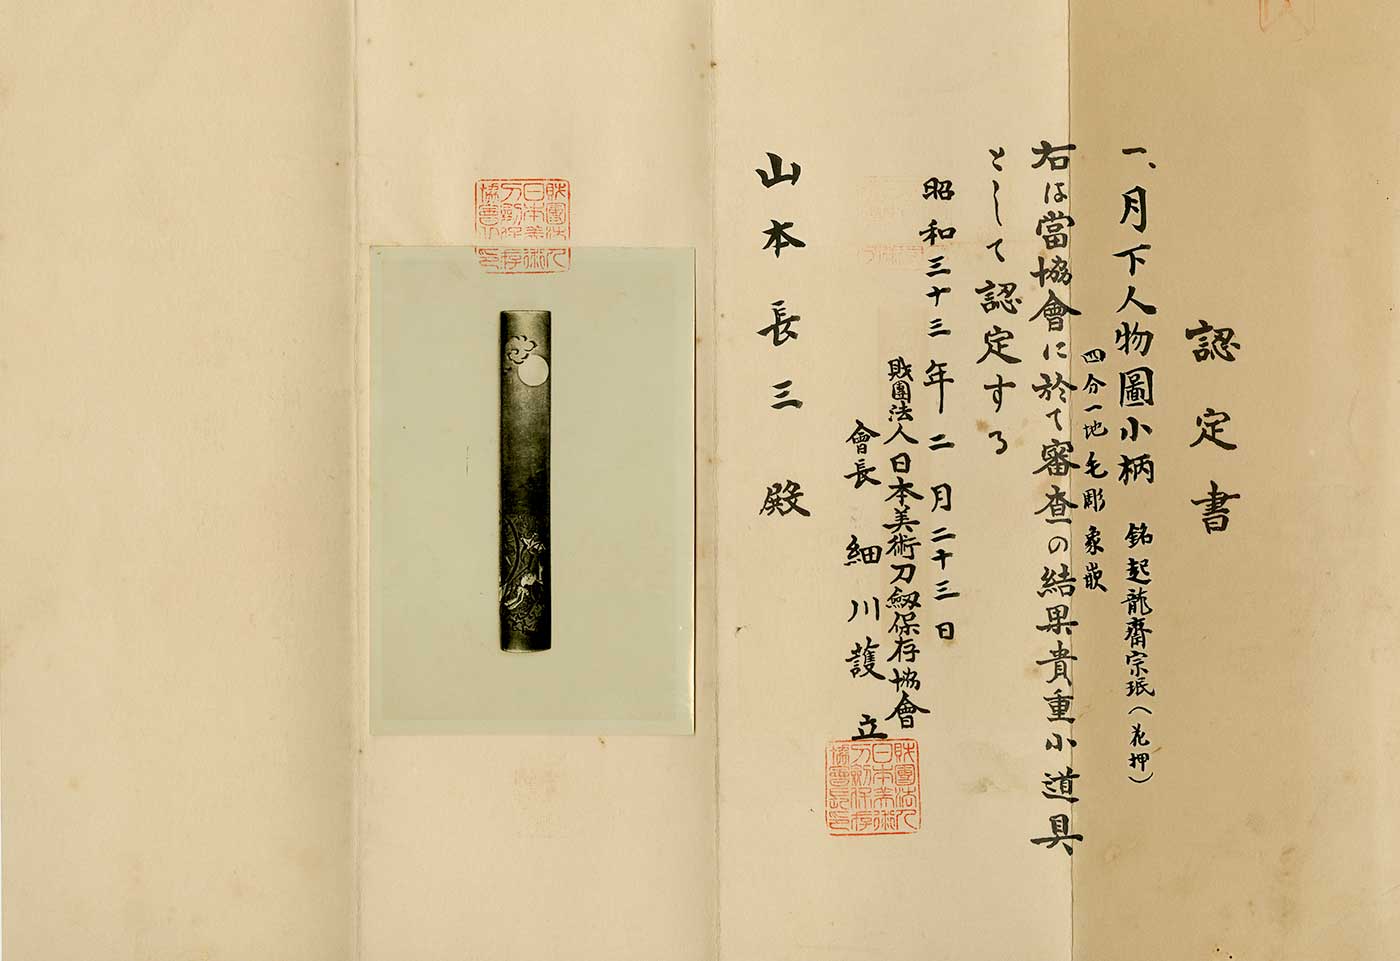 認定書
一、月下人物圖小柄 銘起龍齋宗珉(花押)
四分一地毛彫象嵌
右は當協會に於て審査の結果貴重小道具
として認定する
昭和三十三年二月二十三日
財團法人日本美術刀劔保存協會
會長 細川護立
財團法人
日本美術
刀劔保存
協會長印
山本長三殿
財團法人
日本美術
刀劔保存
協會之印